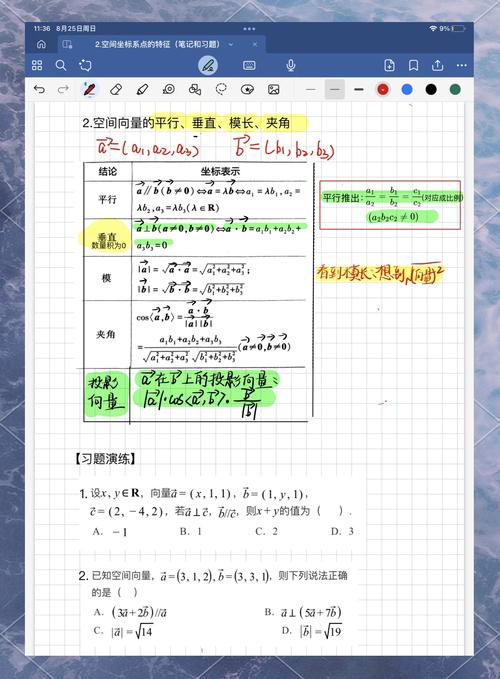 11:36 8月25日周日
9%
2.空间坐标系点的特征（笔记和习题）
2.空间向量的平行、垂直、模长、夹角
a⃗=(a₁,a₂,a₃) b⃗=(b₁,b₂,b₃)
结论 坐标表示
平行 a⃗∥b⃗(b⃗≠0)⇔a⃗=λb⃗⇔a₁=λb₁,a₂=
λb₂,a₃=λb₃(λ∈R)
垂直 数量积为0 a⃗⊥b⃗(a⃗≠0,b⃗≠0)⇔a⃗·b⃗=a₁b₁+a₂b₂+
a₃b₃=0
模 |a⃗|=√(a⃗·a⃗)=√(a₁²+a₂²+a₃²);
|b⃗|=√(b⃗·b⃗)=√(b₁²+b₂²+b₃²)
夹角 cos⟨a⃗,b⃗⟩=a⃗·b⃗/|a⃗||b⃗|
=(a₁b₁+a₂b₂+a₃b₃)/(√(a₁²+a₂²+a₃²)√(b₁²+b₂²+b₃²))(a⃗≠0,b⃗≠0)
投影向量 a⃗在b⃗上的投影向量:
|a⃗|·cos<a⃗,b⃗>·b⃗/|b⃗|
平行推出: a₁/a₂=b₁/b₂=c₁/c₂(对应成比例)
(a₂b₂c₂≠0)
看到模长,想到√(向量)²
【习题演练】
1. 设x,y∈R，向量a⃗=(x,1,1)，b⃗=(1,y,1)，
c⃗=(2,-4,2)，若a⃗⊥c⃗，b⃗//c⃗，则x+y的值为（ ）．
A．-1 B．1 C．2 D．3
2. 已知空间向量，a⃗=(3,1,2),b⃗=(3,3,1)，则下列说法正确
的是（ ）
A．(3a⃗+2b⃗)//a⃗ B．a⃗⊥(5a⃗+7b⃗)
C．|a⃗|=√14 D．|b⃗|=√19